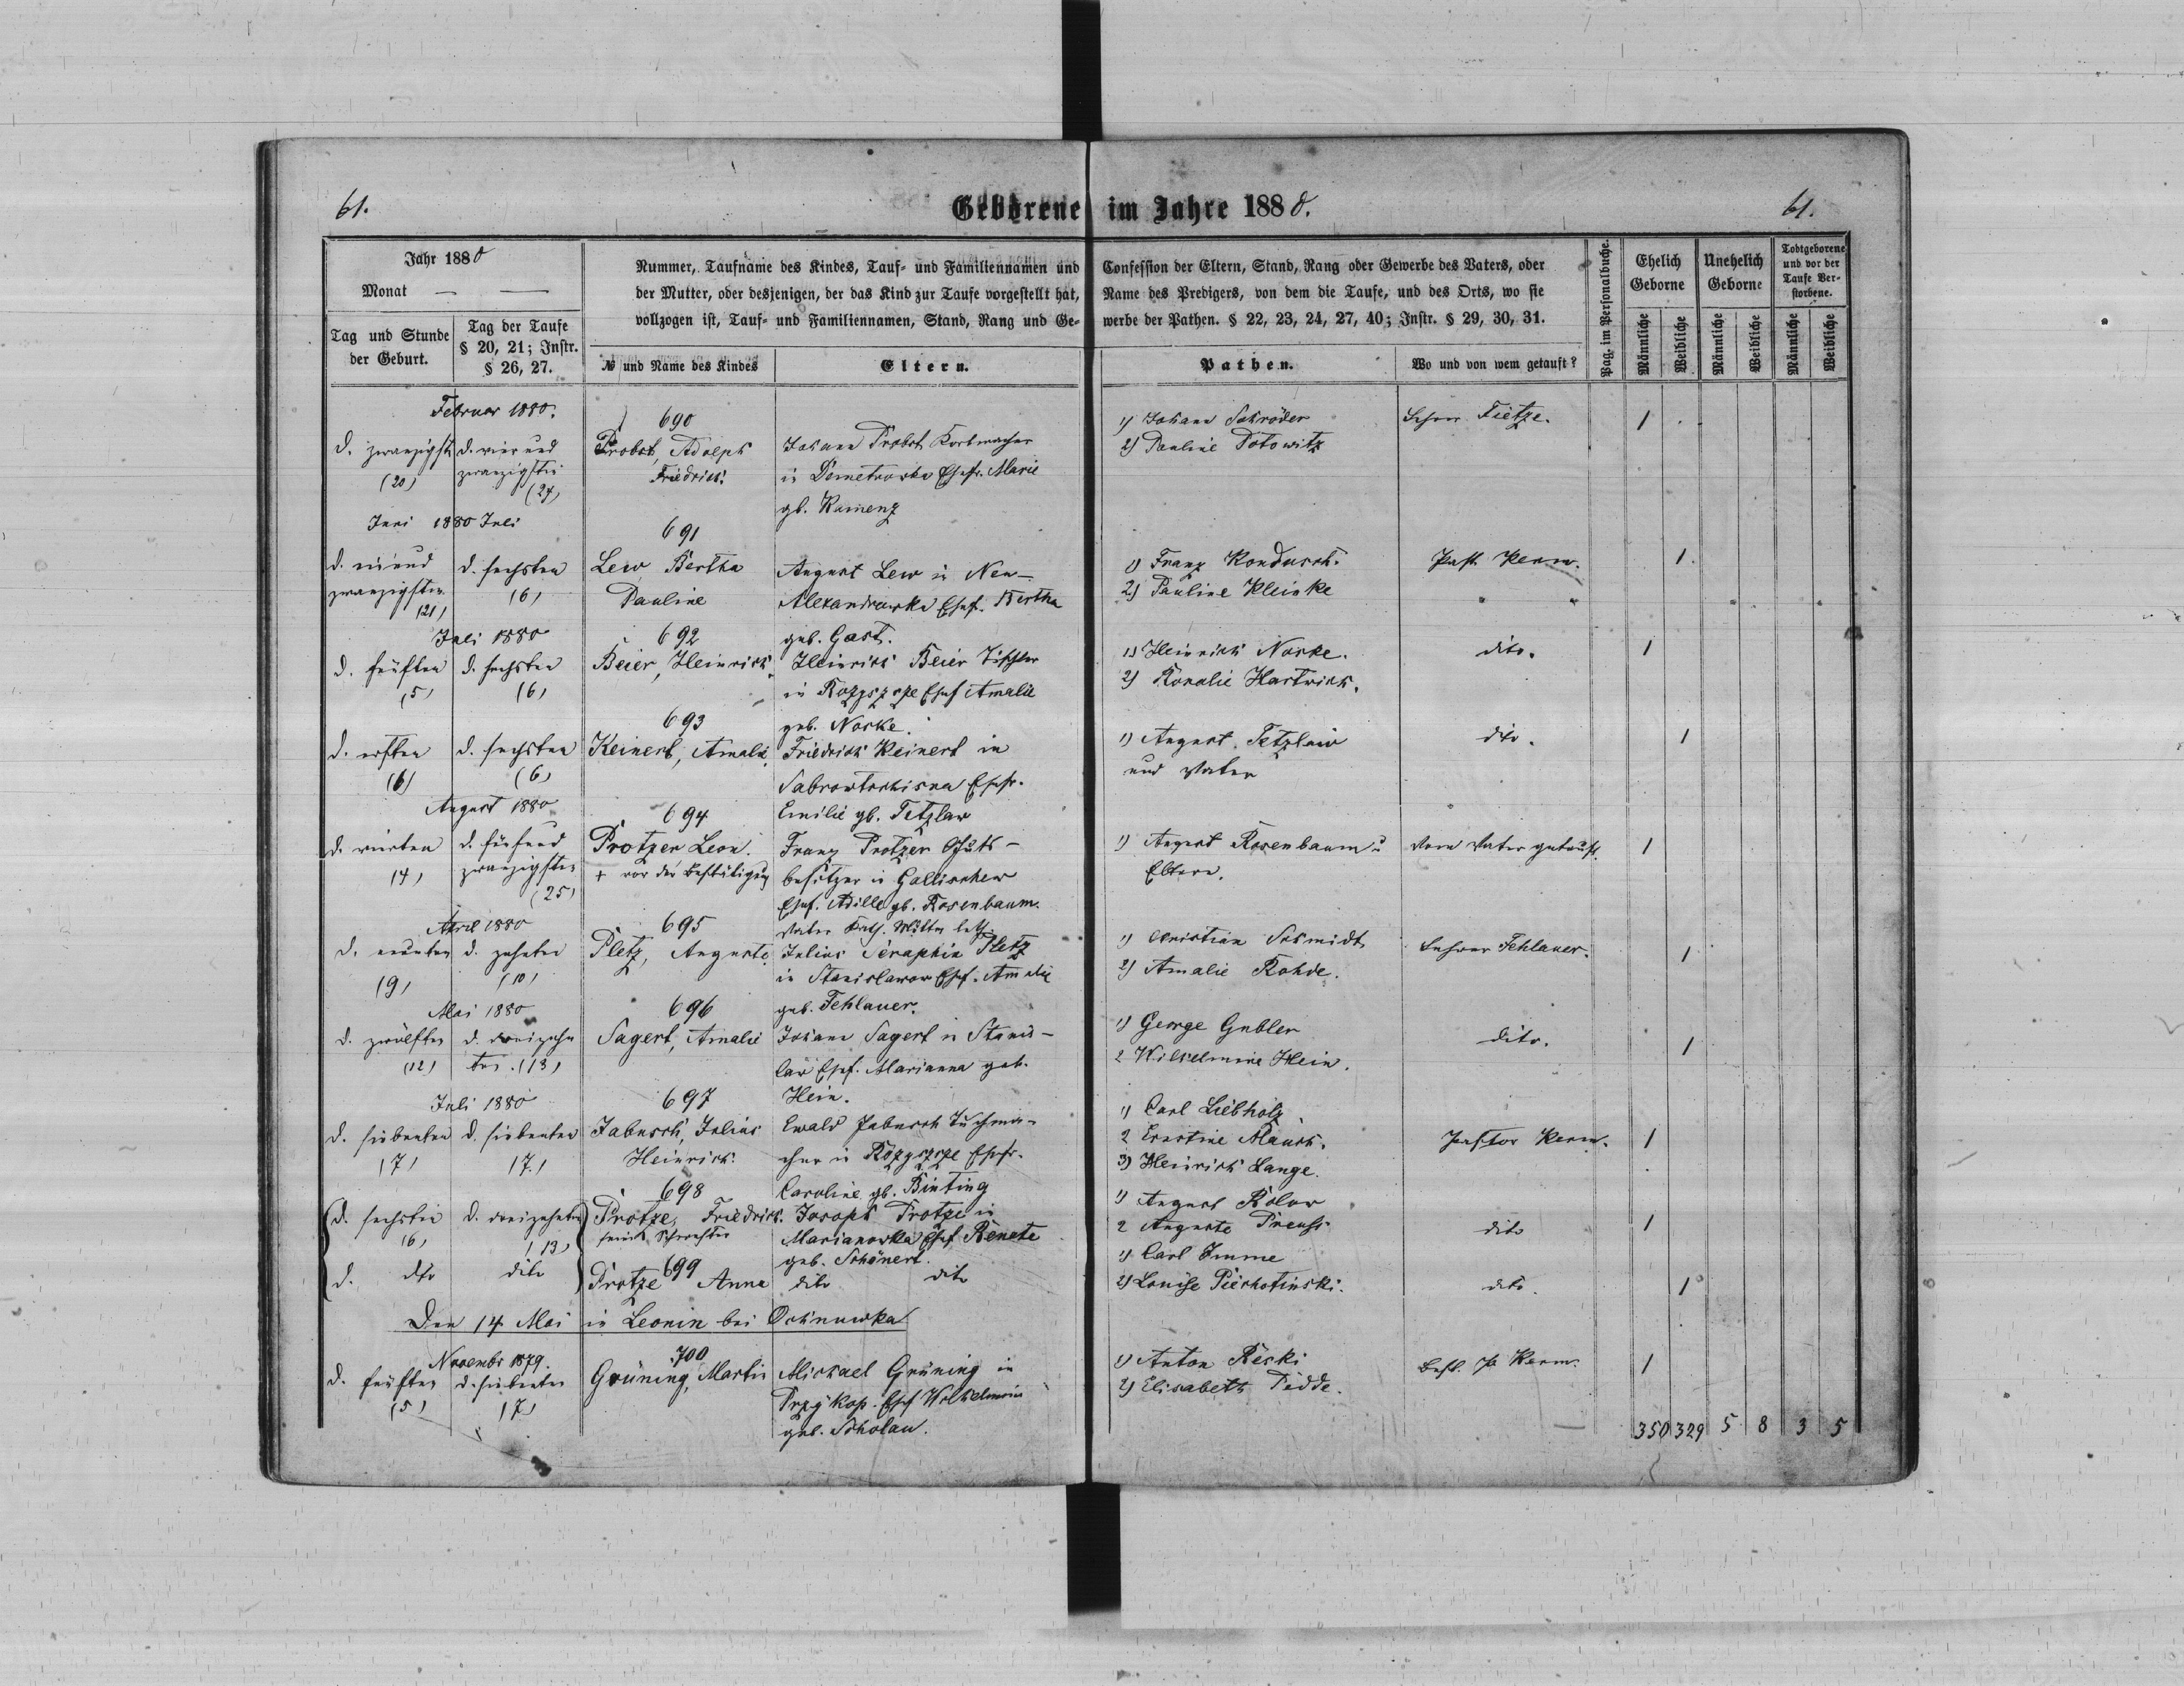 61.
Geborene im Jahre 1880.
61.
Jahr 1880
Monat — —
Tag und Stunde der Geburt.
Tag der Taufe § 20, 21; Instr. § 26, 27.
Nummer, Taufname des Kindes, Tauf- und Familiennamen und
der Mutter, oder desjenigen, der das Kind zur Taufe vorgestellt hat,
vollzogen ist, Tauf- und Familiennamen, Stand, Rang und Ge-
№ und Name des Kindes
Eltern.
Confession der Eltern, Stand, Rang oder Gewerbe des Vaters, oder
Name des Predigers, von dem die Taufe, und des Orts, wo sie
werbe der Pathen. § 22, 23, 24, 27, 40; Instr. § 29, 30, 31.
Pathen.
Wo und von wem getauft?
Pag. im Personalbuche.
Ehelich Geborne
Unehelich Geborne
Todtgeborene und vor der Taufe Verstorbene.
Männliche
Weibliche
Männliche
Weibliche
Männliche
Weibliche
Februar 1880.
d. zwanzigst (20)
d. vier und zwanzigsten (24)
690
Probst, Adolph
Friedrich.
Johann Probst Korbmacher
in Demetrowka Ehefr. Marie
gb. Kamenz
1) Johann Schröder
2) Pauline Potowitz
Lehrer Tietze.
1
Juni 1880 Juli
d. ein und zwanzigsten (21)
d. sechsten (6)
691
Lew Bertha
Pauline
August Lew in Neu-
Alexandrowka Ehef. Bertha
geb. Gast.
1) Franz Kondusch.
2) Pauline Kleinke
Past. Kerm.
1.
Juli 1880
d. fünften (5)
d. sechsten (6)
692
Beier, Heinrich.
Heinrich Beier Tischler
in Rozyszcze Ehef Amalie
geb. Noske.
1) Heinrich Noske.
2) Rosalie Hartwich.
dito.
1
d. ersten (6)
d. sechsten (6)
693
Keinert, Amalie.
Friedrich Keinert in
Ehefr.
Emilie gb. Tetzlaw
1) August Tetzlaw
und Vater
dito.
1
August 1880
d. vierten 14)
d. fünf und zwanzigsten (25)
694
Protzer Leon.
+ vor der Bestätigung
Franz Protzer Guts-
besitzer in Gallischew
Ehef. Adille gb. Rosenbaum.
Vater Kath. Mutter luth.
1) August Rosenbaum u
Eltern.
vom Vater getauft.
1
April 1880
d. neunten (9)
d. zehnten (10)
695
Pletz, Auguste.
Julius Seraphin Pletz
in Stanislawow Ehef. Amalie
geb. Fehlauer.
1) Christian Schmidt
2) Amalie Rohde.
Lehrer Fehlauer.
1
Mai 1880
d. zwölften (12)
d. dreizehnten. (13)
696
Sagert, Amalie
Johann Sagert in Stanis-
law Ehef. Marianna geb.
Hein.
1) George Gubler
2 Wilhelmine Hein.
dito.
1
Juli 1880
d. siebenten (7)
d. siebenten (7.)
697
Jabusch, Julius
Heinrich.
Ewald Jabusch Tuchma-
cher in Rozyszcze Ehefr.
Caroline gb. Binting
1) Carl Liebholz
2 Ernstine Mausch.
3) Heinrich Lange.
Pastor Kerm.
1
d. sechsten (6)
d. dreizehnten (13)
698
Protze, Friedrich.
seine Schwester
Joseph Protze in
Marianowka Ehef Renete
geb. Schönert.
1) August Rolow
2 Auguste Preuss
dito
1
d. dto
dito
699
Protze Anna
dito dito
1) Carl Imme
2) Louise
dito.
1
Den 14 Mai in Leonin bei Ochnuwka
Novembr 1879.
d. fünften (5)
d. siebenten (7)
700
Grüning, Martin
Michael Grüning in
Przykop. Ehef Wilhelmine
geb. Scholau.
1) Anton Reski
2) Elisabeth Pidde.
Best. P. Kerm.
1
350 329 5 8 3 5